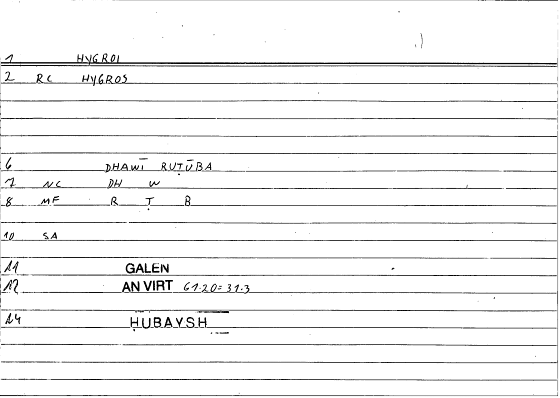 1 HYGROI
2 RC HYGROS
6 DHAWĪ RUṬŪBA
7 NC DH W
8 MF R Ṭ B
10 SA
11 GALEN
12 AN VIRT 61·20=31·3
14 ḤUBAYSH